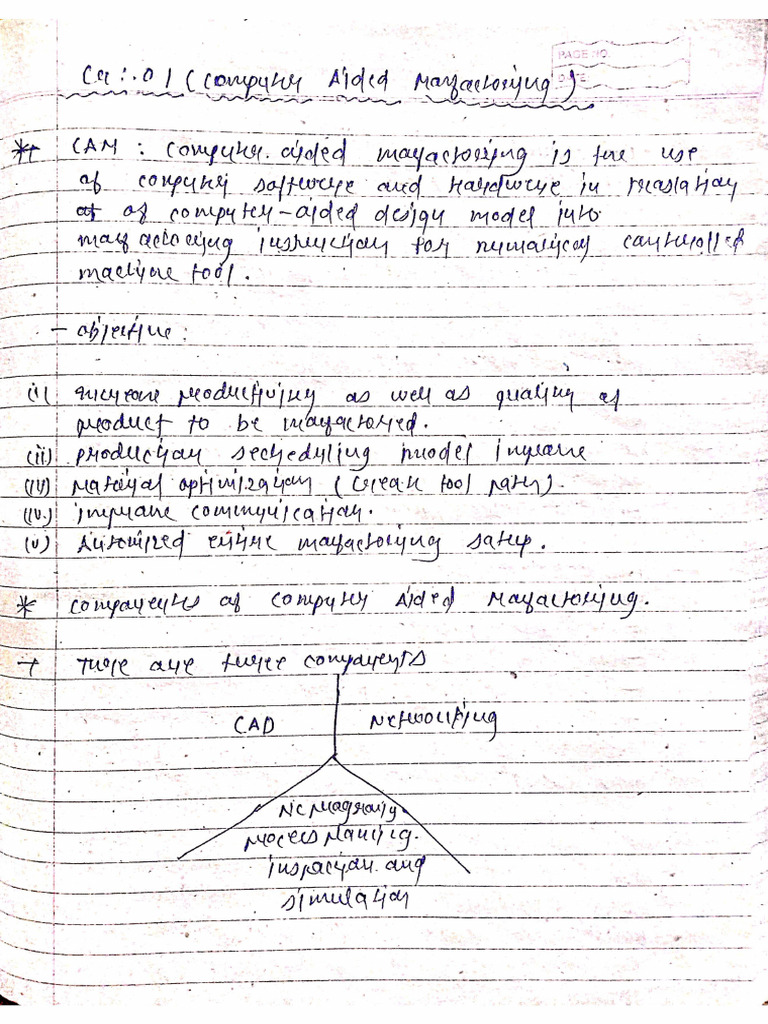 PAGE NO.
DATE
CH:-01 (Computer Aided Manufactoring)
* CAM : Computer-aided manufactoring is the use
of computer software and hardware in translation
of computer-aided design model into
manufactoring instruction for numarical controlled
machine tool.
- objective :
(i) increase productivity as well as quality of
product to be manufactored.
(ii) production secheduling model improve
(iv) Material optimization (Create tool path).
(iv.) improve communication.
(v) Automized entire manufactoring setup.
* Components of Computer Aided Manufactoring.
→ There are three components
CAD Networking
NC programing
process planning.
inspaction and
simulation